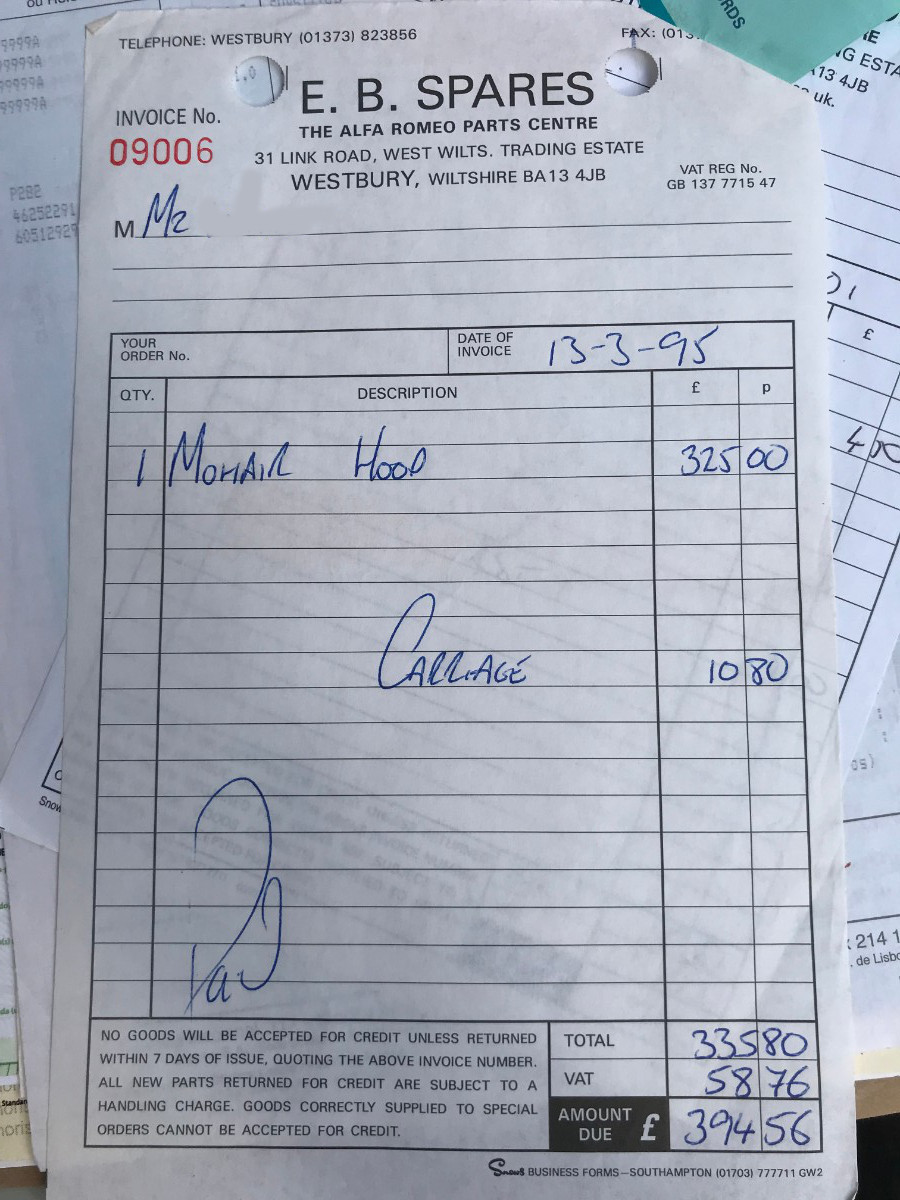 TELEPHONE: WESTBURY (01373) 823856
FAX: (013
E. B. SPARES
THE ALFA ROMEO PARTS CENTRE
31 LINK ROAD, WEST WILTS. TRADING ESTATE
WESTBURY, WILTSHIRE BA13 4JB
INVOICE No.
09006
VAT REG No.
GB 137 7715 47
M Mr
YOUR
ORDER No.
DATE OF
INVOICE
13-3-95
QTY. DESCRIPTION £ p
1 MOHAIR HOOD 325 00
CARRIAGE 10 80
Paid
NO GOODS WILL BE ACCEPTED FOR CREDIT UNLESS RETURNED
WITHIN 7 DAYS OF ISSUE, QUOTING THE ABOVE INVOICE NUMBER.
ALL NEW PARTS RETURNED FOR CREDIT ARE SUBJECT TO A
HANDLING CHARGE. GOODS CORRECTLY SUPPLIED TO SPECIAL
ORDERS CANNOT BE ACCEPTED FOR CREDIT.
TOTAL 335 80
VAT 58 76
AMOUNT
DUE £ 394 56
Snows BUSINESS FORMS–SOUTHAMPTON (01703) 777711 GW2
9999A
99999A
99999A
99999A
P282
46252291
60512929
RDS
NG ESTA
A13 4JB
uk.
£
400
Snow
214 1
de Lisbo